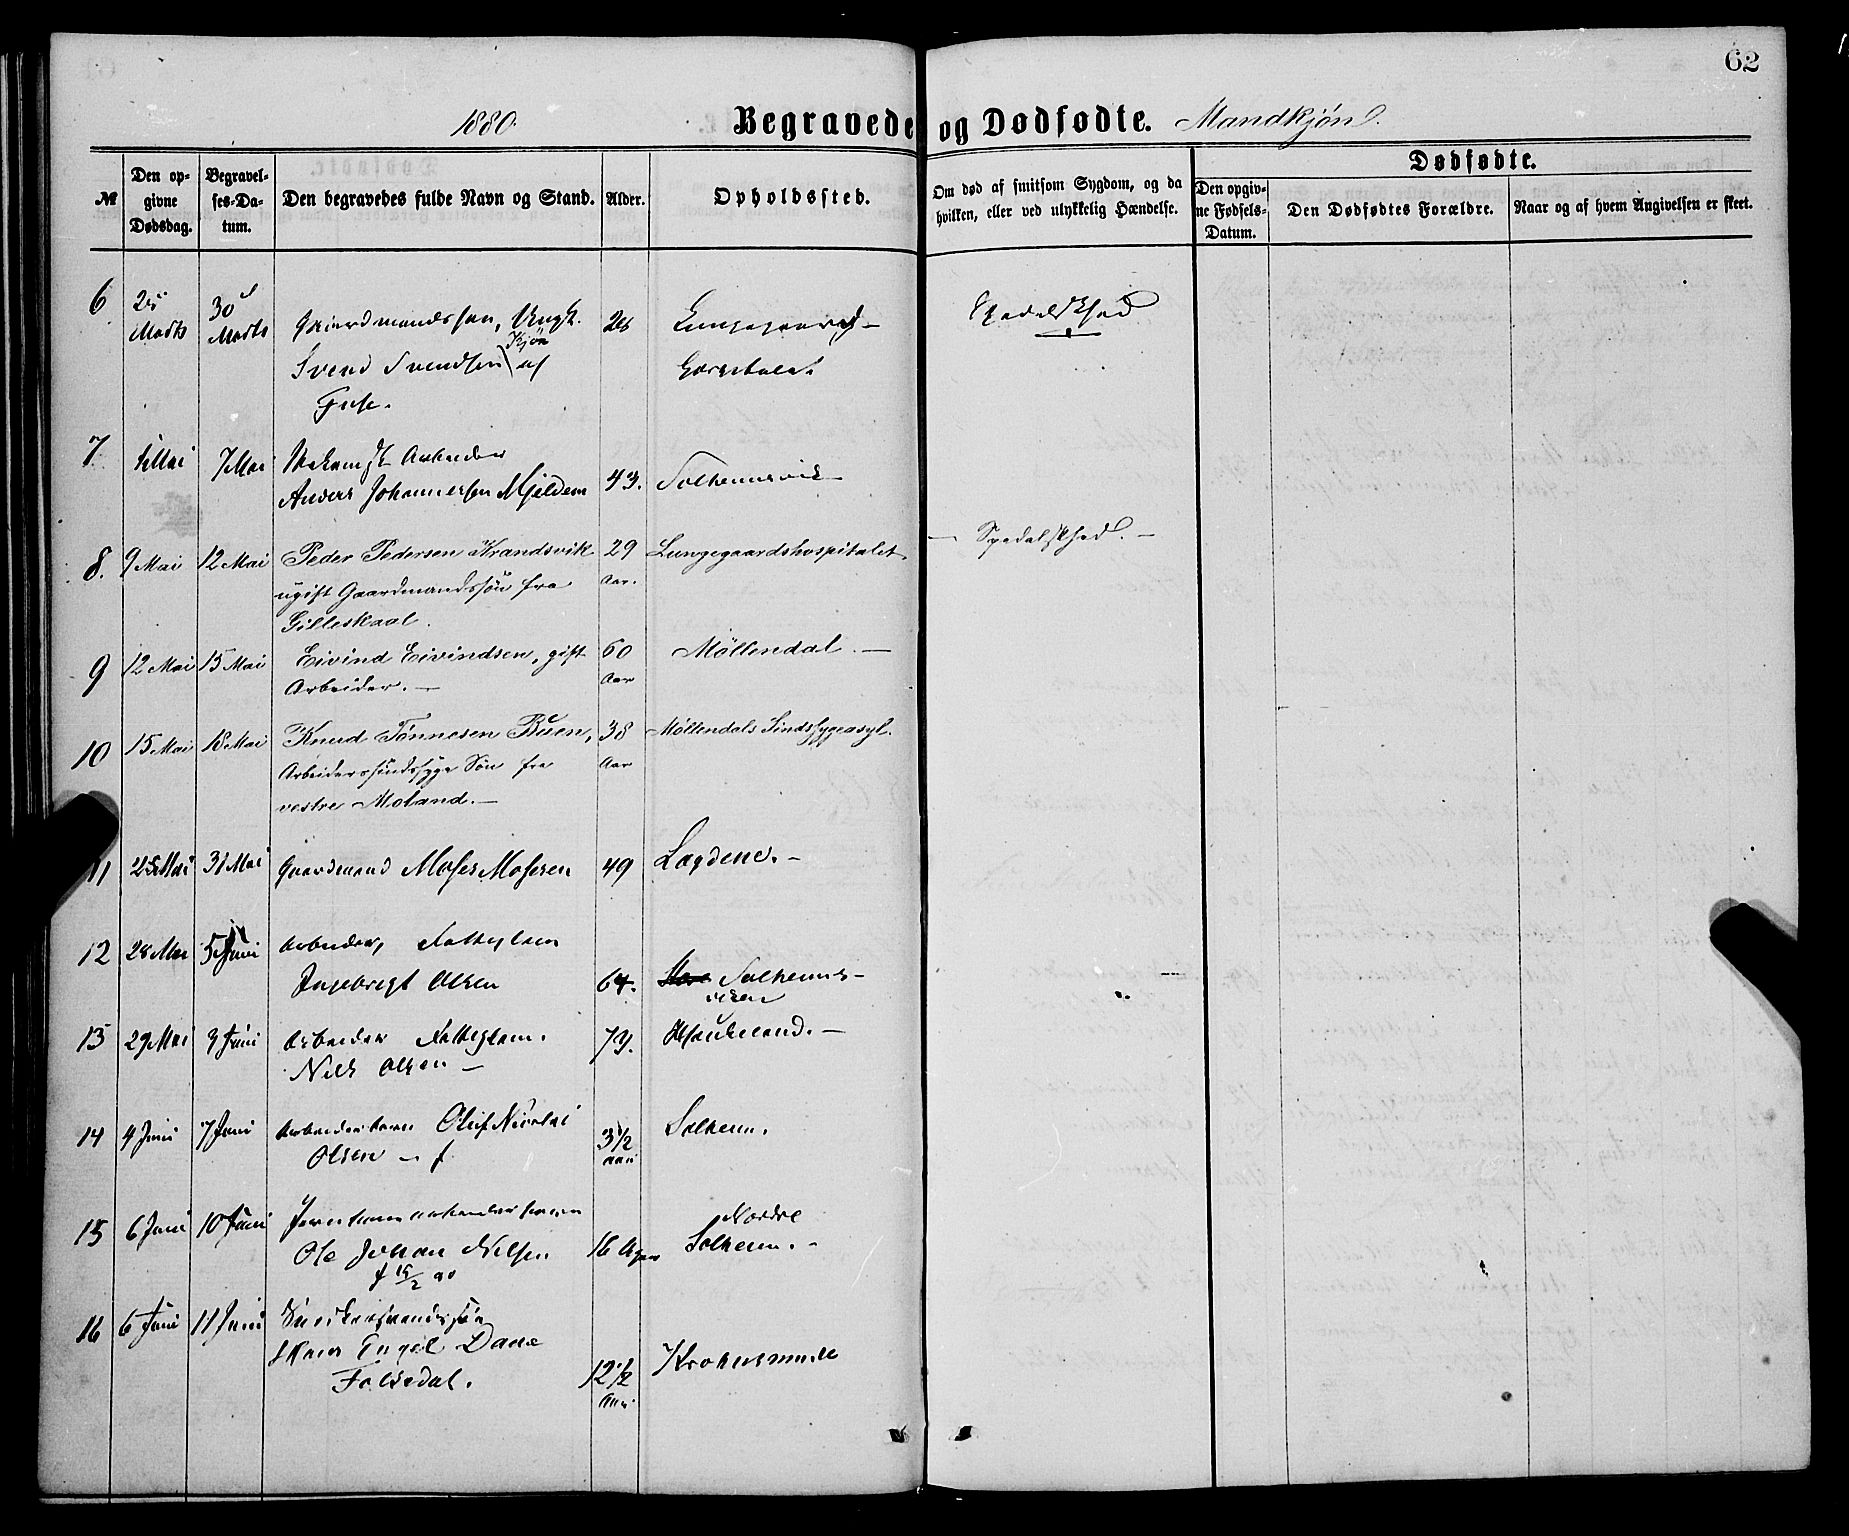 62
1880.
Begravede og Dødfødte. Mandkjøn.
№
Den opgivne Dødsdag.
Begravelses-Datum.
Den begravedes fulde Navn og Stand.
Alder.
Opholdssted.
Om død af smitsom Sygdom, og da hvilken, eller ved ulykkelig Hændelse.
Dødfødte.
Den opgivne Fødsels-Datum.
Den Dødfødtes Forældre.
Naar og af hvem Angivelsen er skeet.
6
Marts
30
Marts
Gaardmandssøn,
Svend Svendsen af
Fuse.
Spedalskhed
7
Mai
7 Mai
Arbeider
Anders Johannessen Mjeldem
43.
Solheimsvik
8.
9 Mai
12 Mai
Peder Pedersen Strandsvik
ugift Gaardmandssøn fra
Gilleskaal.
29
Aar.
Lungegaardshospitalet.
Spedalskhed. —
9
12 Mai
15 Mai
Eivind Eivindsen, gift
Arbeider. —
60
Aar
Möllendal. —
10
15 Mai
18 Mai
Knud Tönnesen Buen,
Arbeiders sindssyge Søn fra
vestre Moland. —
38
Aar
Möllendals Sindssygeasyl.
11
25 Mai
31 Mai
Gaardmand Moses Mosesen
49
12
28 Mai
5 Juni
Arbeider, Fattiglem
Ingebrigt Olsen
64.
Solheims-
viken
13
29 Mai
3 Juni
Arbeider Fattiglem.
Nils Olsen —
14
4 Juni
7 Juni
Arbeiderbarn Oluf Nicolai
Olsen — f
3 1/2
Aar
Solheim.
15
6 Juni
10 Juni
Ole Johan Nilsen
f 15/2 80
16 Uger
Nordre
Solheim. —
16
6 Juni
11 Juni
Engel Dane
Folsedal.
12 1/2
Aar